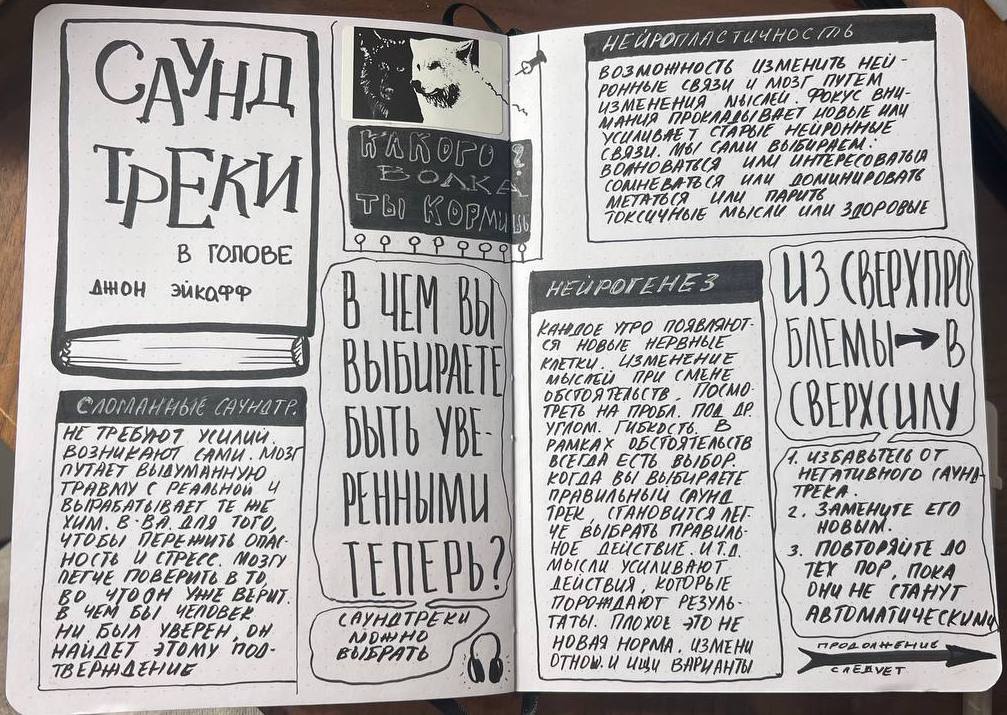 САУНД
ТРЕКИ
В ГОЛОВЕ
ДЖОН ЭЙКАФФ
СЛОМАННЫЕ САУНДТР.
НЕ ТРЕБУЮТ УСИЛИЙ.
ВОЗНИКАЮТ САМИ. МОЗГ
ПУТАЕТ ВЫДУМАННУЮ
ТРАВМУ С РЕАЛЬНОЙ И
ВЫРАБАТЫВАЕТ ТЕ ЖЕ
ХИМ. В-ВА ДЛЯ ТОГО,
ЧТОБЫ ПЕРЕЖИТЬ ОПАС-
НОСТЬ И СТРЕСС. МОЗГУ
ЛЕГЧЕ ПОВЕРИТЬ В ТО,
ВО ЧТО ОН УЖЕ ВЕРИТ.
В ЧЕМ БЫ ЧЕЛОВЕК
НИ БЫЛ УВЕРЕН, ОН
НАЙДЕТ ЭТОМУ ПОД-
ТВЕРЖДЕНИЕ
КАКОГО
ВОЛКА
ТЫ КОРМИШЬ?
В ЧЕМ ВЫ
ВЫБИРАЕТЕ
БЫТЬ УВЕ-
РЕННЫМИ
ТЕПЕРЬ?
САУНДТРЕКИ
МОЖНО
ВЫБРАТЬ
НЕЙРОПЛАСТИЧНОСТЬ
ВОЗМОЖНОСТЬ ИЗМЕНИТЬ НЕЙ-
РОННЫЕ СВЯЗИ И МОЗГ ПУТЕМ
ИЗМЕНЕНИЯ МЫСЛЕЙ. ФОКУС ВНИ-
МАНИЯ ПРОКЛАДЫВАЕТ НОВЫЕ ИЛИ
УСИЛИВАЕТ СТАРЫЕ НЕЙРОННЫЕ
СВЯЗИ. МЫ САМИ ВЫБИРАЕМ:
ВОЛНОВАТЬСЯ ИЛИ ИНТЕРЕСОВАТЬСЯ
СОМНЕВАТЬСЯ ИЛИ ДОМИНИРОВАТЬ
МЕТАТЬСЯ ИЛИ ПАРИТЬ
ТОКСИЧНЫЕ МЫСЛИ ИЛИ ЗДОРОВЫЕ
НЕЙРОГЕНЕЗ
КАЖДОЕ УТРО ПОЯВЛЯЮТ-
СЯ НОВЫЕ НЕРВНЫЕ
КЛЕТКИ. ИЗМЕНЕНИЕ
МЫСЛЕЙ ПРИ СМЕНЕ
ОБСТОЯТЕЛЬСТВ. ПОСМО-
ТРЕТЬ НА ПРОБЛ. ПОД ДР.
УГЛОМ. ГИБКОСТЬ. В
РАМКАХ ОБСТОЯТЕЛЬСТВ
ВСЕГДА ЕСТЬ ВЫБОР.
КОГДА ВЫ ВЫБИРАЕТЕ
ПРАВИЛЬНЫЙ САУНД
ТРЕК, СТАНОВИТСЯ ЛЕГ-
ЧЕ ВЫБРАТЬ ПРАВИЛЬ-
НОЕ ДЕЙСТВИЕ. И.Т.Д.
МЫСЛИ УСИЛИВАЮТ
ДЕЙСТВИЯ, КОТОРЫЕ
ПОРОЖДАЮТ РЕЗУЛЬ-
ТАТЫ. ПЛОХОЕ ЭТО НЕ
НОВАЯ НОРМА. ИЗМЕНИ
ОТНОШ. И ИЩИ ВАРИАНТЫ
ИЗ СВЕРХПРО
БЛЕМЫ → В
СВЕРХСИЛУ
1. ИЗБАВЬТЕСЬ ОТ
НЕГАТИВНОГО САУНД-
ТРЕКА.
2. ЗАМЕНИТЕ ЕГО
НОВЫМ.
3. ПОВТОРЯЙТЕ ДО
ТЕХ ПОР, ПОКА
ОНИ НЕ СТАНУТ
АВТОМАТИЧЕСКИМИ
ПРОДОЛЖЕНИЕ
СЛЕДУЕТ